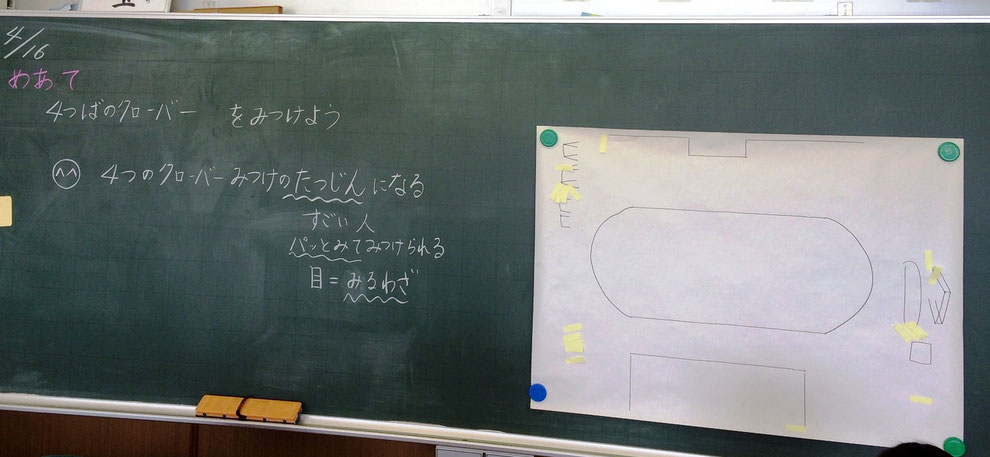 4/16
めあて
4つばのクローバー をみつけよう
4つのクローバーみつけのたつじんになる
すごい人
パッとみてみつけられる
目=みるわざ